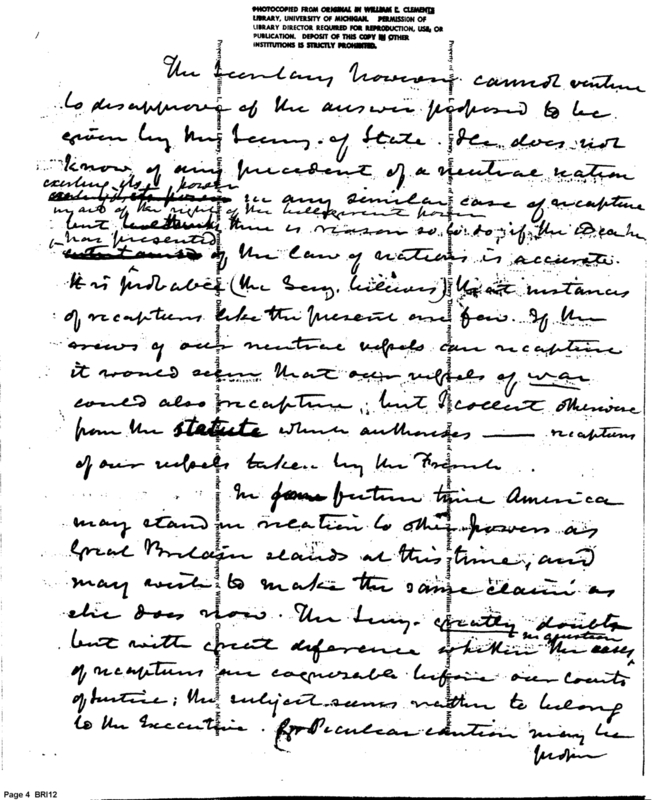 PHOTOCOPIED FROM ORIGINAL IN WILLIAM L. CLEMENTS
LIBRARY, UNIVERSITY OF MICHIGAN. PERMISSION OF
LIBRARY DIRECTOR REQUIRED FOR REPRODUCTION, USE, OR
PUBLICATION. DEPOSIT OF THIS COPY IN OTHER
INSTITUTIONS IS STRICTLY PROHIBITED.
The Secretary however cannot venture
to disapprove of the answer proposed to be
given by the Secry. of State. He does not
know of any precedent of a neutral nation
exerting its power
in any similar case of recapture
in aid of the right of the belligerent power
but there is reason so to do, if the
has presented
of the law of nations is accurate.
It is probable (the Secy. believes) that instances
of recapture like the present are few. If the
crews of our neutral vessels can recapture
it would seem that our vessels of war
could also recapture, but I collect otherwise
from the statute which authorises — recapture
of our vessels taken by the French.
In some future time America
may stand in relation to other powers as
Great Britain stands at this time, and
may wish to make the same claim as
she does now. The Secy. greatly doubts
but with great deference whether the cases
in question
of recapture are cognizable before our Courts
of Justice; the subject seems rather to belong
to the Executive. Peculiar caution may be
proper
Page 4 BRI12